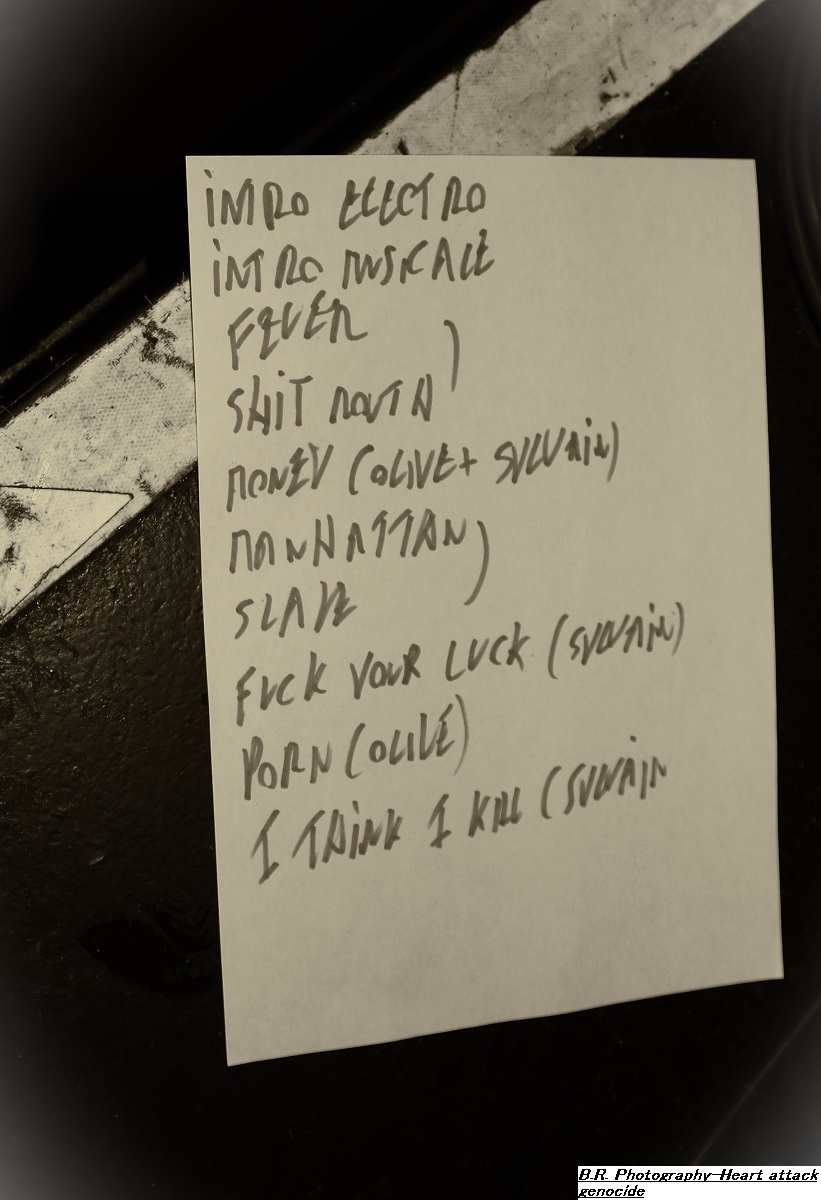 INTRO ELECTRO
INTRO MUSICALE
FEVER
SHIT MOUTH
MONEY (OLIVE + SYLVAIN)
MANHATTAN
SLAVE
FUCK YOUR LUCK (SYLVAIN)
PORN (OLIVE)
I THINK I KILL (SYLVAIN
B.R. Photography-Heart attack
genocide